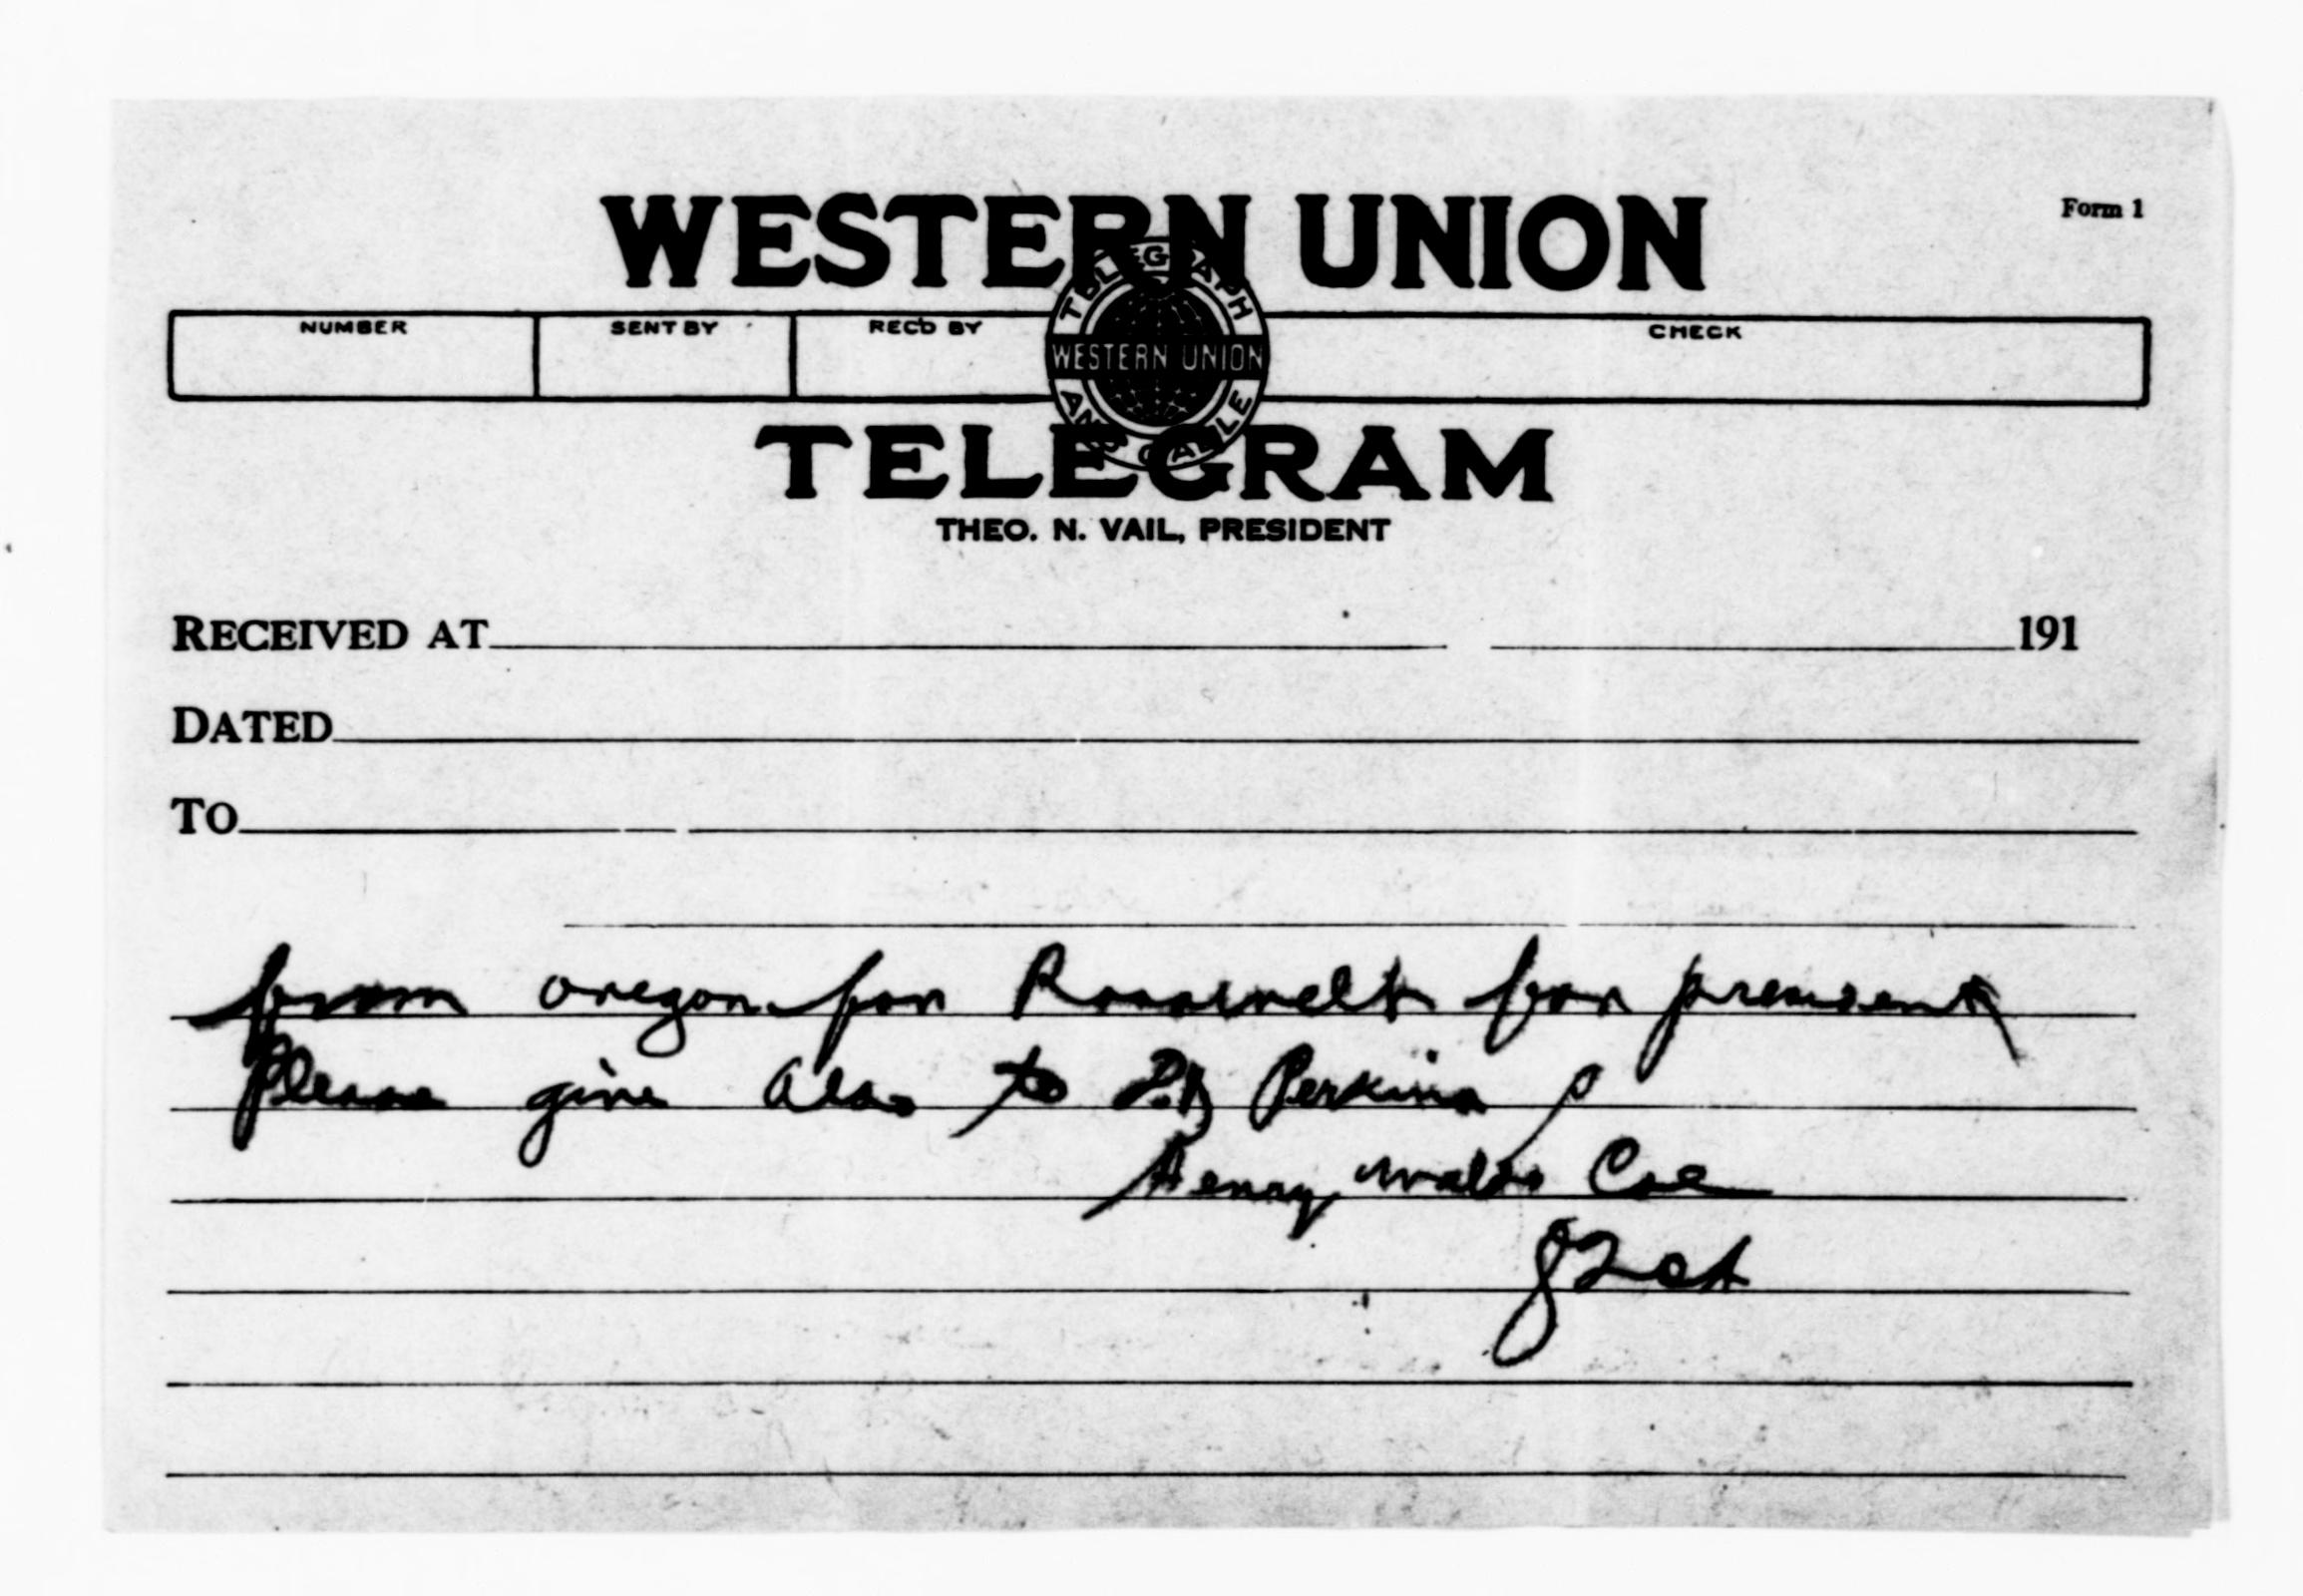 WESTERN UNION
Form 1
NUMBER SENT BY REC'D BY CHECK
TELEGRAPH WESTERN UNION AND CABLE
TELEGRAM
THEO. N. VAIL, PRESIDENT
RECEIVED AT 191
DATED
TO
from oregon for Roosevelt for president
Please give also to Perkins
Henry Waldo Coe